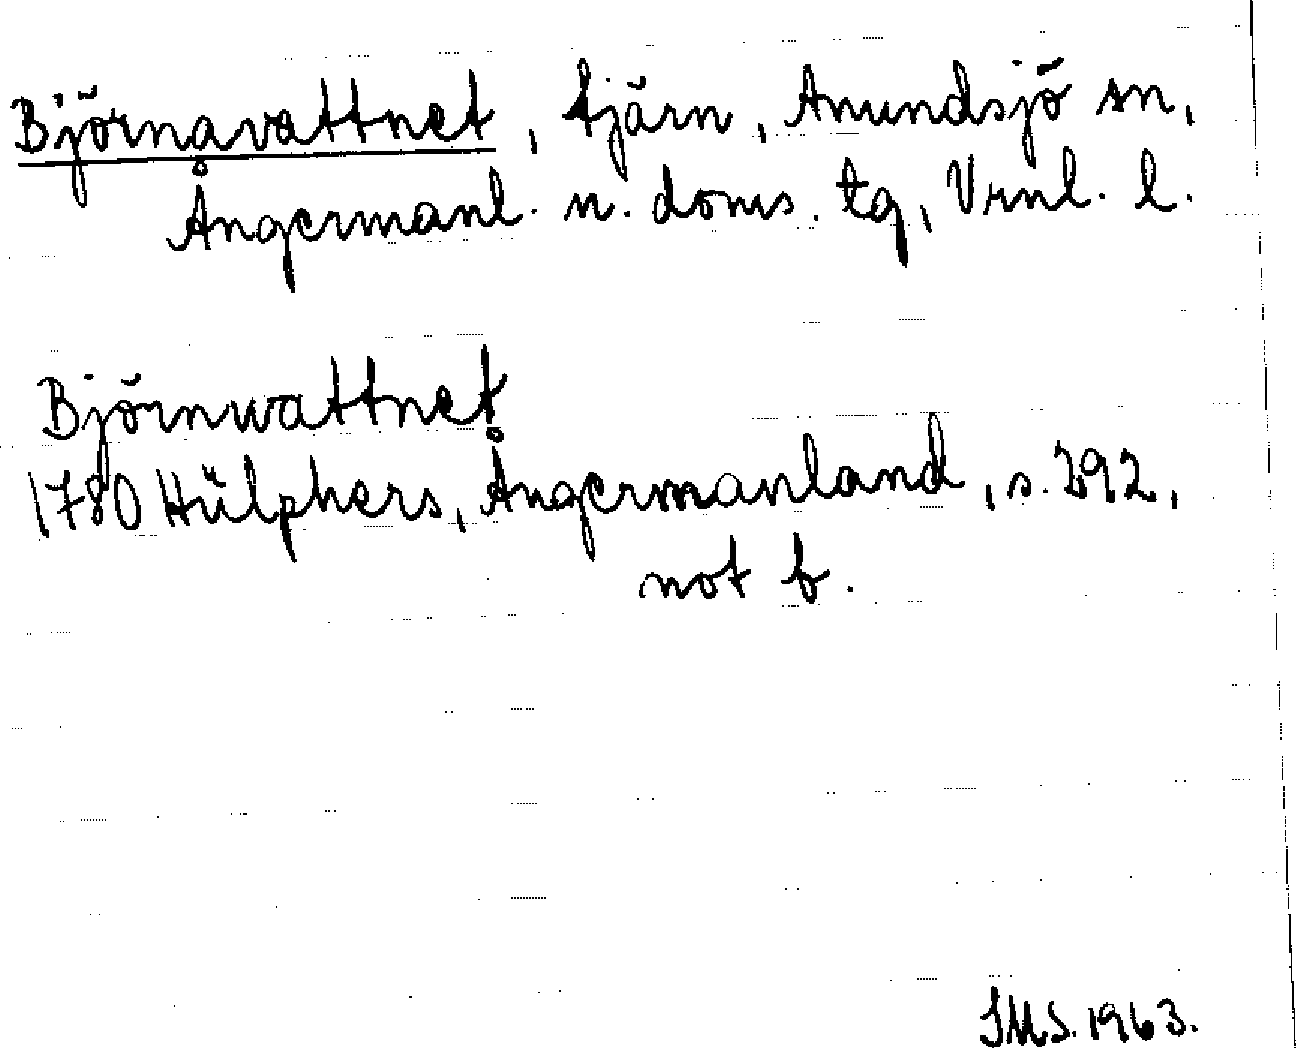 Björnavattnet, tjärn, Anundsjö sn,
Ångermanl. n. doms. tg, Vrnl. l.
Björnwattnet
1780 Hülphers, Ångermanland, s. 292,
not b.
JMS. 1963.